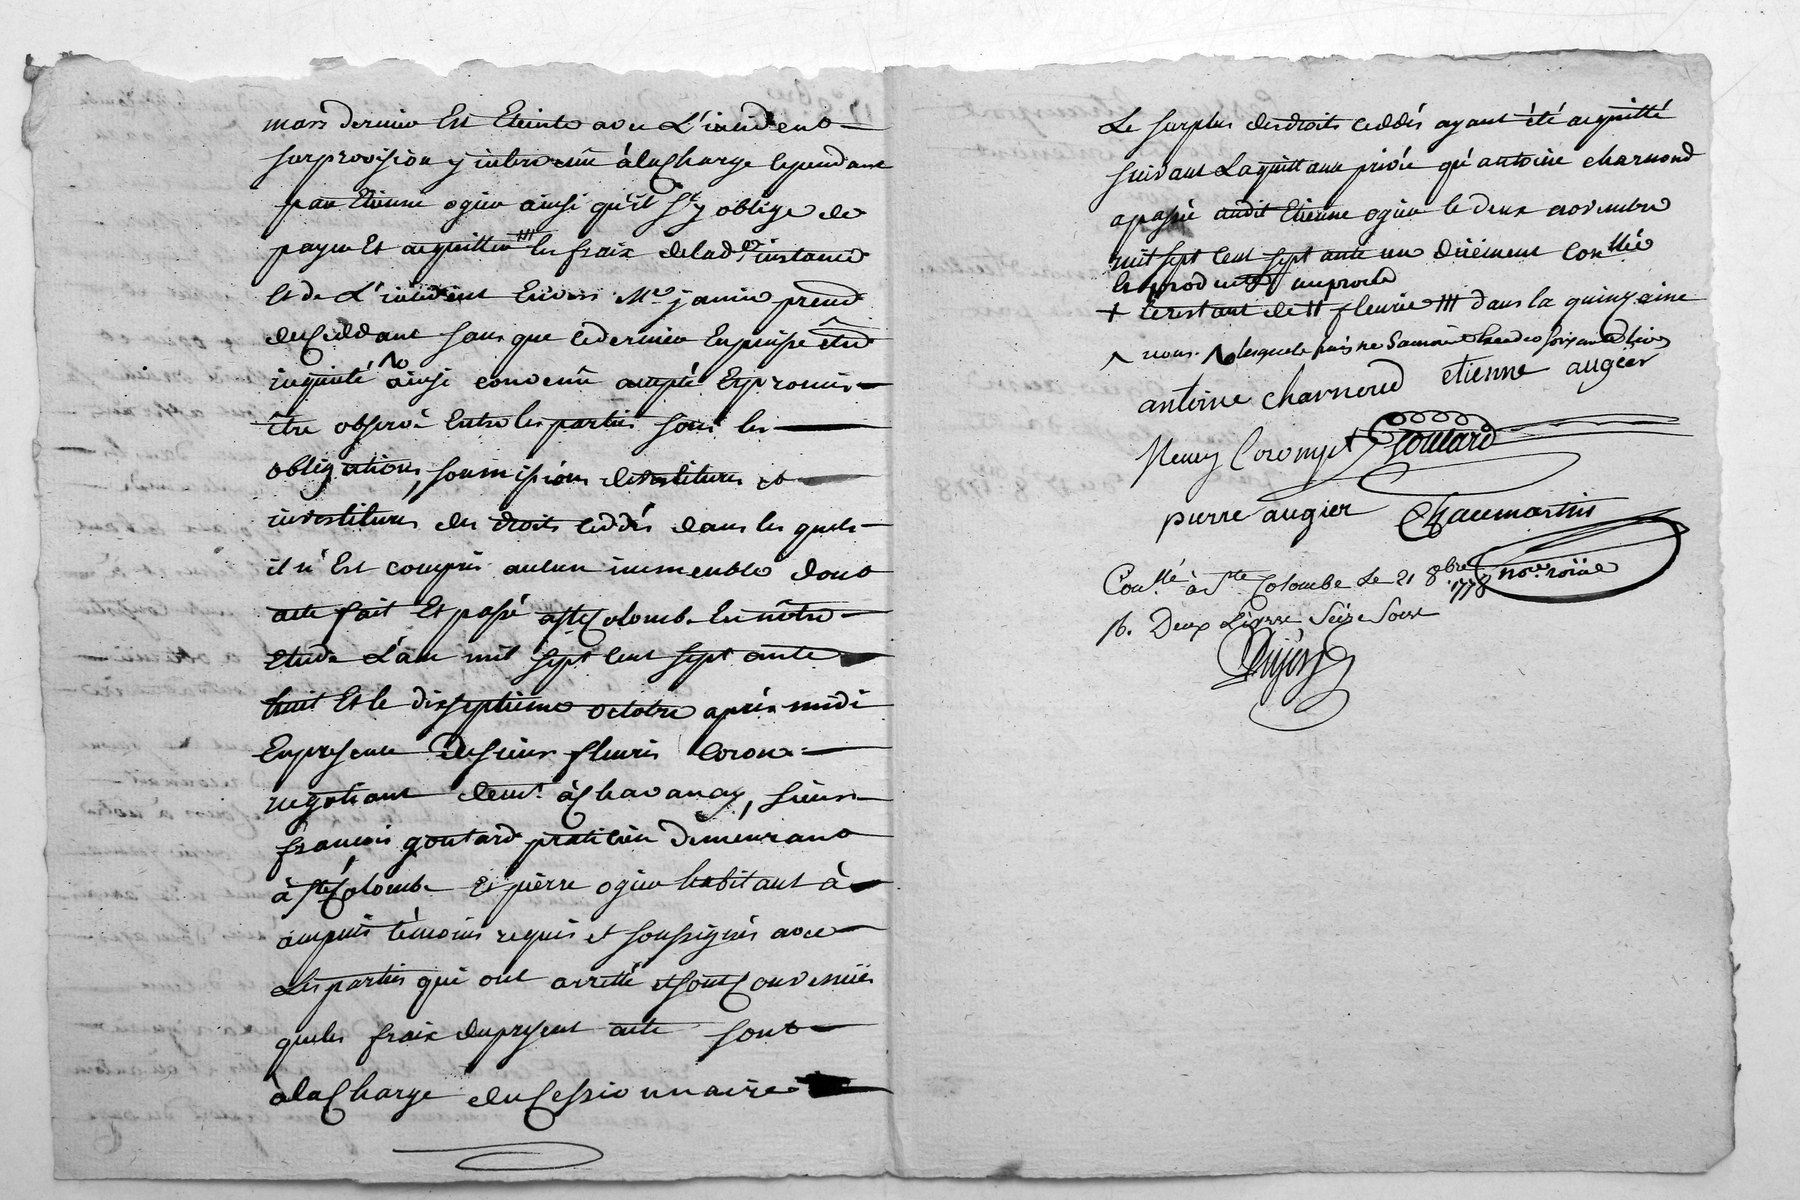 mars dernier Est Eteinte avec L'incident
sur provision y intervenüe à la Charge cependant
par Etienne ogier ainsi qu'il s'y oblige de
payer Et acquitter les fraix de lad.e instance
Et de L'incident Envers Me. janin preud
du Ceddant sans que ce dernier En puisse être
inquieté ainsi convenû accepté Et promis
être observé Entre les parties sous les
obligations, soumissions devestitures et
investitures des droits ceddés dans les quels
il n'Est compris aucun immeuble dont
acte fait Et passé a Ste Colombe En nôtre
Etude L'an mil sept Cent septante
huit Et le dixseptieme octobre après midi
En presence de sieur fleuris Coron
negotiant demt. à Chavanay, sieur
francois goutard praticien demeurant
à Ste Colombe Et pierre ogier habitant à
ampuis témoins requis et soussignés avec
Les parties qui ont arretté et sont Convenües
que les fraix du present acte sont
à la Charge du Cessionnaire
Le surplus des droits ceddés ayant été acquitté
suivant La quittance privée qu'antoine charnoud
a passée audit Etienne ogier le deux novembre
mil sept Cent septante un düement Conllée
+ le restant de fleurie dans la quinzaine
nous
antoine charnoud etienne augier
fleury Coront Goutard
pierre augier Chaumartin
nore. roïial
Con.llé à Ste Colombe Le 21 8bre 1778
R. Deux Livres Seize Sous